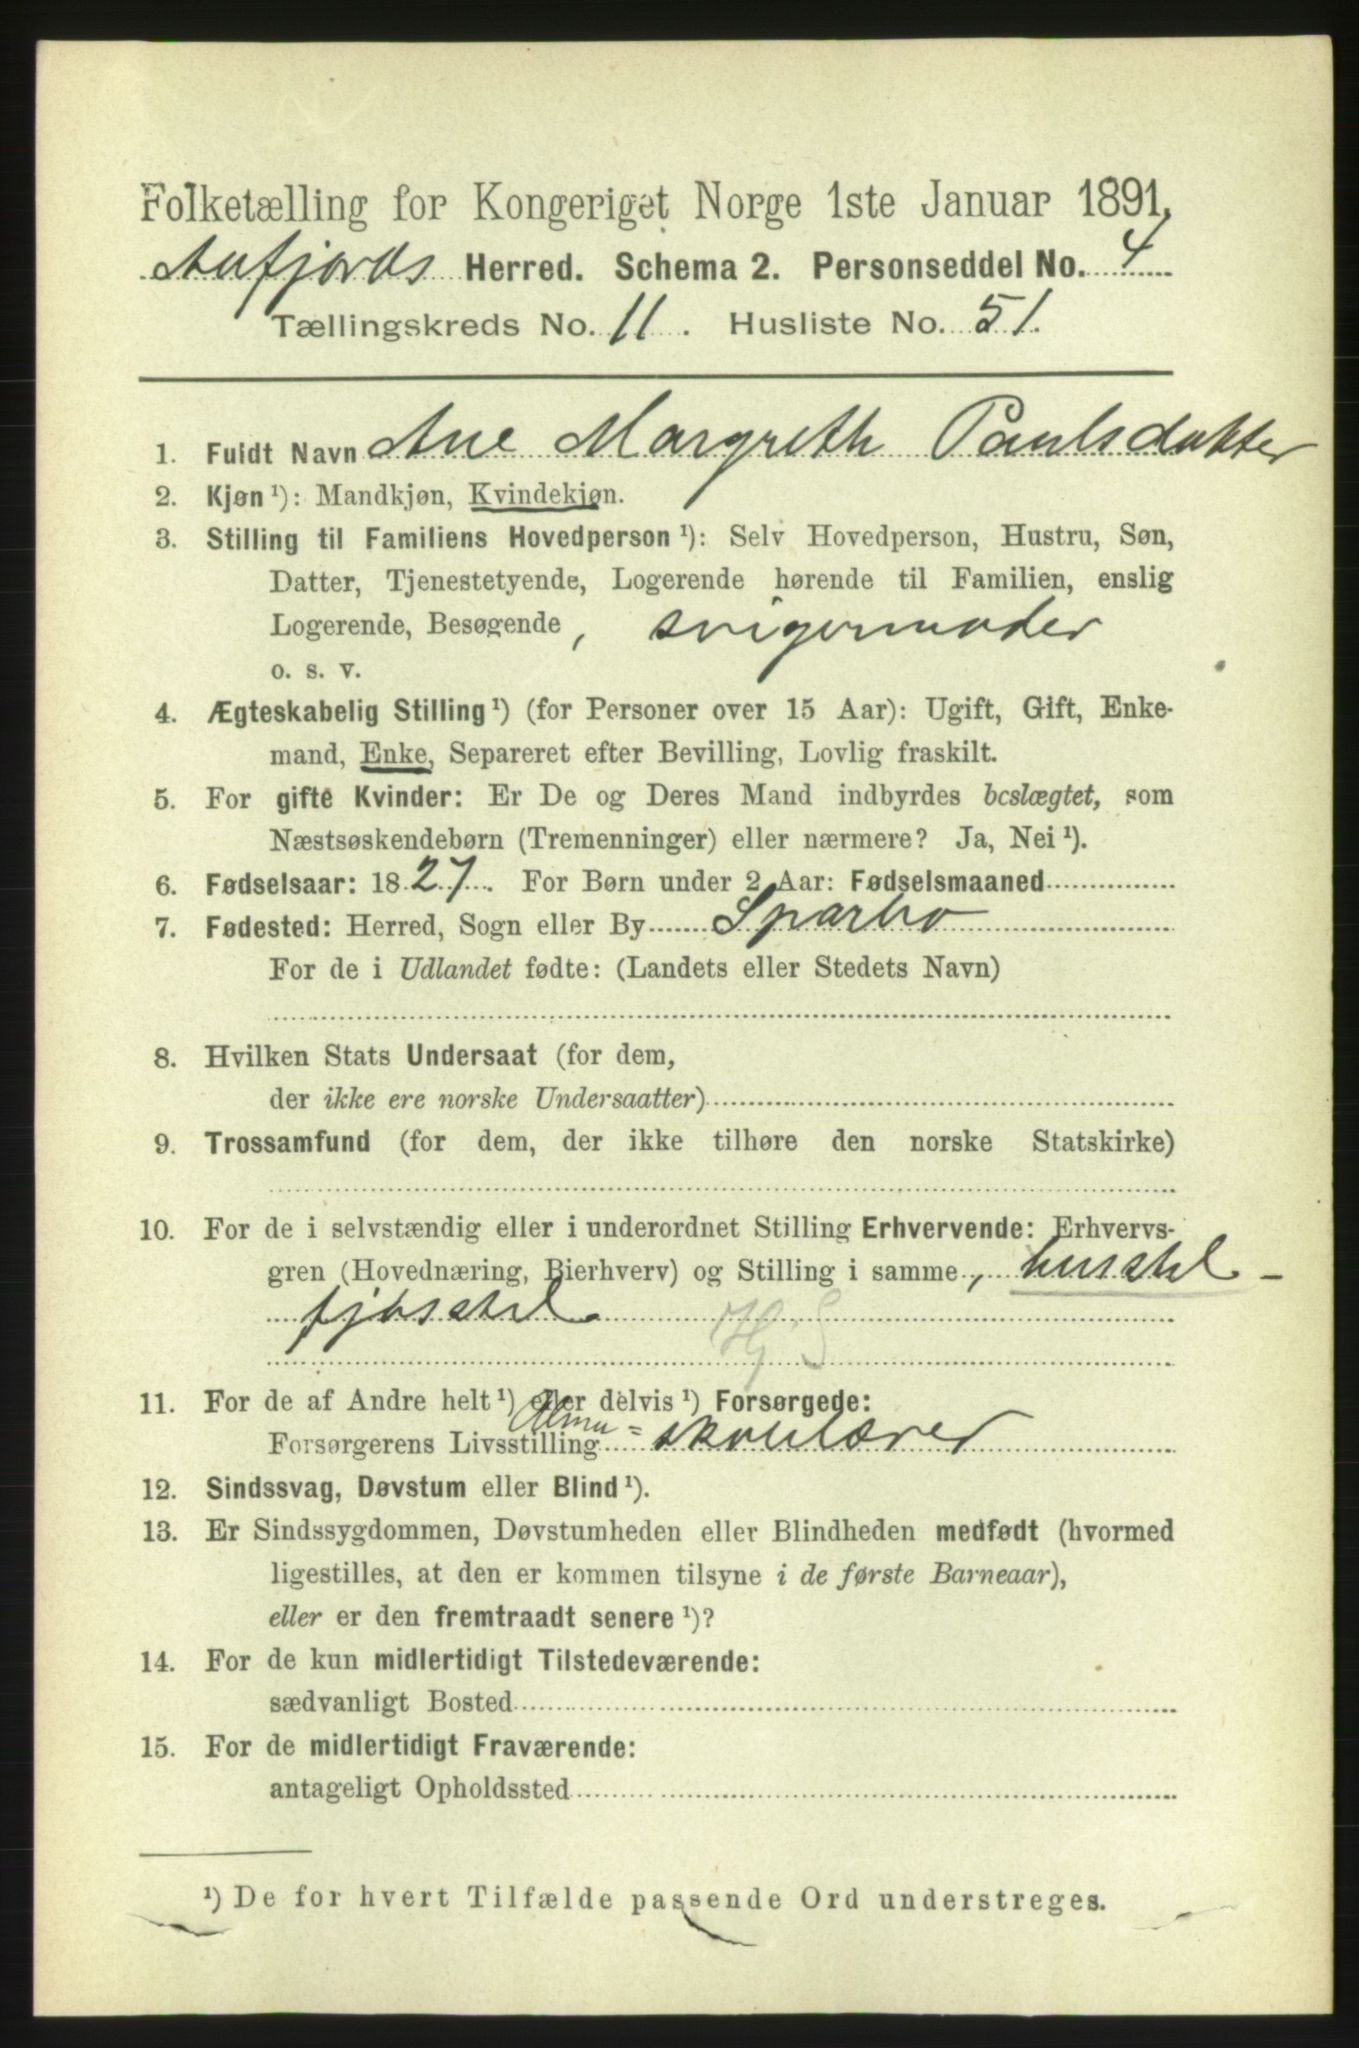 Folketælling for Kongeriget Norge 1ste Januar 1891.
Aafjords Herred. Schema 2. Personseddel No. 4
Tællingskreds No. 11. Husliste No. 51.
1. Fuldt Navn Ane Margreth Paulsdatter
2. Kjøn ¹): Mandkjøn, Kvindekjøn.
3. Stilling til Familiens Hovedperson ¹): Selv Hovedperson, Hustru, Søn,
Datter, Tjenestetyende, Logerende hørende til Familien, enslig
Logerende, Besøgende, svigermoder
o. s. v.
4. Ægteskabelig Stilling ¹) (for Personer over 15 Aar): Ugift, Gift, Enke-
mand, Enke, Separeret efter Bevilling, Lovlig fraskilt.
5. For gifte Kvinder: Er De og Deres Mand indbyrdes beslægtet, som
Næstsøskendebørn (Tremenninger) eller nærmere? Ja, Nei ¹).
6. Fødselsaar: 1827. For Børn under 2 Aar: Fødselsmaaned
7. Fødested: Herred, Sogn eller By Sparbo
For de i Udlandet fødte: (Landets eller Stedets Navn)
8. Hvilken Stats Undersaat (for dem,
der ikke ere norske Undersaatter)
9. Trossamfund (for dem, der ikke tilhøre den norske Statskirke)
10. For de i selvstændig eller i underordnet Stilling Erhvervende: Erhvervs-
gren (Hovednæring, Bierhverv) og Stilling i samme, husstel -
fjøsstel
Hj S
11. For de af Andre helt ¹) eller delvis ¹) Forsørgede:
Forsørgerens Livsstilling Almu= skolelærer
12. Sindssvag, Døvstum eller Blind ¹).
13. Er Sindssygdommen, Døvstumheden eller Blindheden medfødt (hvormed
ligestilles, at den er kommen tilsyne i de første Barneaar),
eller er den fremtraadt senere ¹)?
14. For de kun midlertidigt Tilstedeværende:
sædvanligt Bosted
15. For de midlertidigt Fraværende:
antageligt Opholdssted
¹) De for hvert Tilfælde passende Ord understreges.